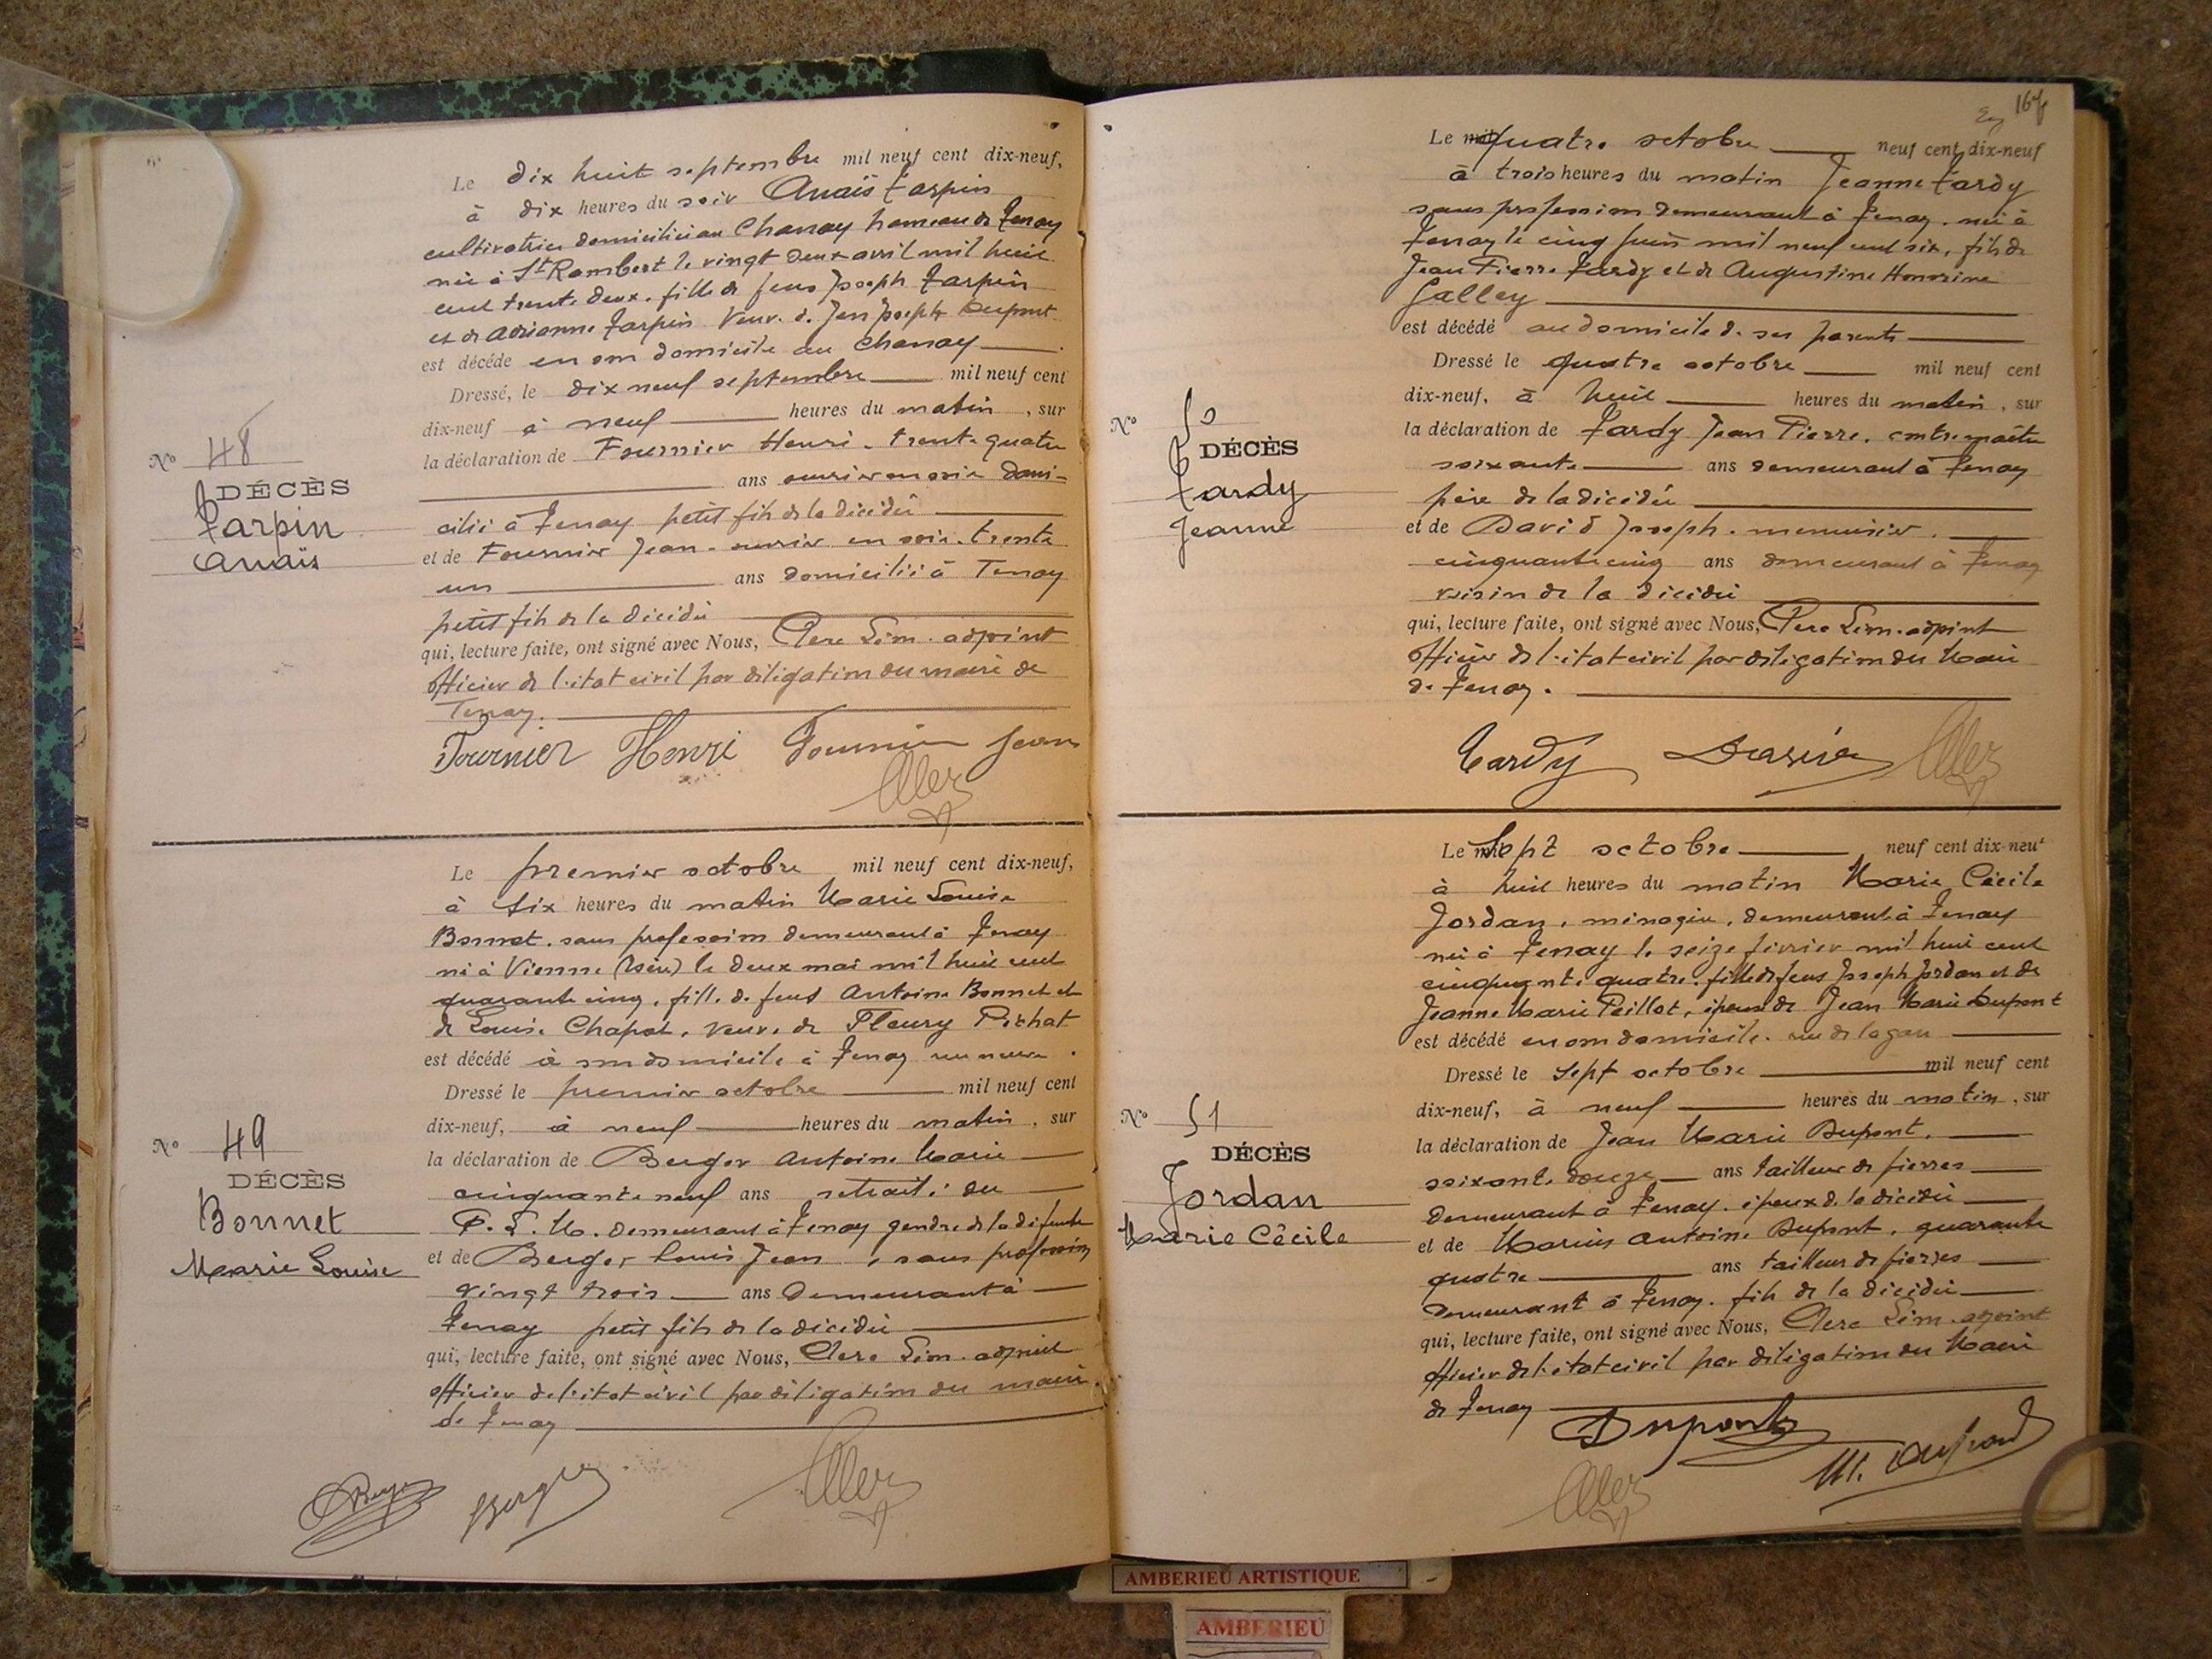 N° 48
DÉCÈS
Tarpin
Anaïs
Le dix huit septembre mil neuf cent dix-neuf,
à dix heures du soir Anaïs Tarpin
cultivatrice domiciliée au Chanay hameau de Tenay
née à St Rambert le vingt deux avril mil huit
cent trente deux. fille de feus Joseph Tarpin
et de Adrianne Tarpin Veuve de Jean Joseph Dupont
est décédé en son domicile au Chanay
Dressé, le dix neuf septembre mil neuf cent
dix-neuf à neuf heures du matin, sur
la déclaration de Fournier Henri. trente quatre
ans ouvrier en soie domi-
cilié à Tenay petit fils de la décédée
et de Fournier Jean. ouvrier en soie. trente
un ans domicilié à Tenay
petit fils de la décédée
qui, lecture faite, ont signé avec Nous, Clerc Sim. adjoint
officier de l'état civil par délégation du maire de
Tenay.
Fournier Henri Fournier Jean
N° 49
DÉCÈS
Bonnet
Marie Louise
Le premier octobre mil neuf cent dix-neuf,
à six heures du matin Marie Louise
Bonnet. sans profession demeurant à Tenay
né à Vienne (Isère) le deux mai mil huit cent
quarante cinq, fille de feus Antoine Bonnet et
de Louise Chapot, veuve de Fleury Pichat
est décédé à son domicile à Tenay rue neuve.
Dressé le premier octobre mil neuf cent
dix-neuf, à neuf heures du matin, sur
la déclaration de Berger Antoine Marie
cinquante neuf ans retraité du
P. L. M. demeurant à Tenay gendre de la défunte
et de Berger Louis Jean, sans profession
vingt trois ans demeurant à
Tenay petit fils de la décédée
qui, lecture faite, ont signé avec Nous, Clerc Sim. adjoint
officier de l'état civil par délégation du maire
de Tenay
Berger Berger
167
N° 50
DÉCÈS
Tardy
Jeanne
Le mil quatre octobre neuf cent dix-neuf
à trois heures du matin Jeanne Tardy
sans profession demeurant à Tenay. née à
Tenay le cinq juin mil neuf cent six, fils de
Jean Pierre Tardy et de Augustine Honorine
Galley
est décédé au domicile de ses parents
Dressé le quatre octobre mil neuf cent
dix-neuf, à huit heures du matin, sur
la déclaration de Tardy Jean Pierre. contremaître
soixante ans demeurant à Tenay
père de la décédée
et de David Joseph. menuisier.
cinquante cinq ans demeurant à Tenay
voisin de la décédée
qui, lecture faite, ont signé avec Nous, Clerc Sim. adjoint
officier de l'état civil par délégation du Maire
de Tenay.
Tardy
N° 51
DÉCÈS
Jordan
Marie Cécile
Le mil Sept octobre neuf cent dix-neuf
à huit heures du matin Marie Cécile
Jordan, ménagère, demeurant à Tenay
née à Tenay le seize février mil huit cent
cinquante quatre. fille de feus Joseph Jordan et de
Jeanne Marie Peillot, épouse de Jean Marie Dupont
est décédé en son domicile. rue
Dressé le sept octobre mil neuf cent
dix-neuf, à neuf heures du matin, sur
la déclaration de Jean Marie Dupont.
soixante douze ans tailleur de pierres
demeurant à Tenay. époux de la décédée
et de Marius Antoine Dupont, quarante
quatre ans tailleur de pierres
demeurant à Tenay. fils de la décédée
qui, lecture faite, ont signé avec Nous, Clerc Sim. adjoint
officier de l'état civil par délégation du Maire
de Tenay
Dupont
M. Dupont
AMBERIEU ARTISTIQUE
AMBERIEU